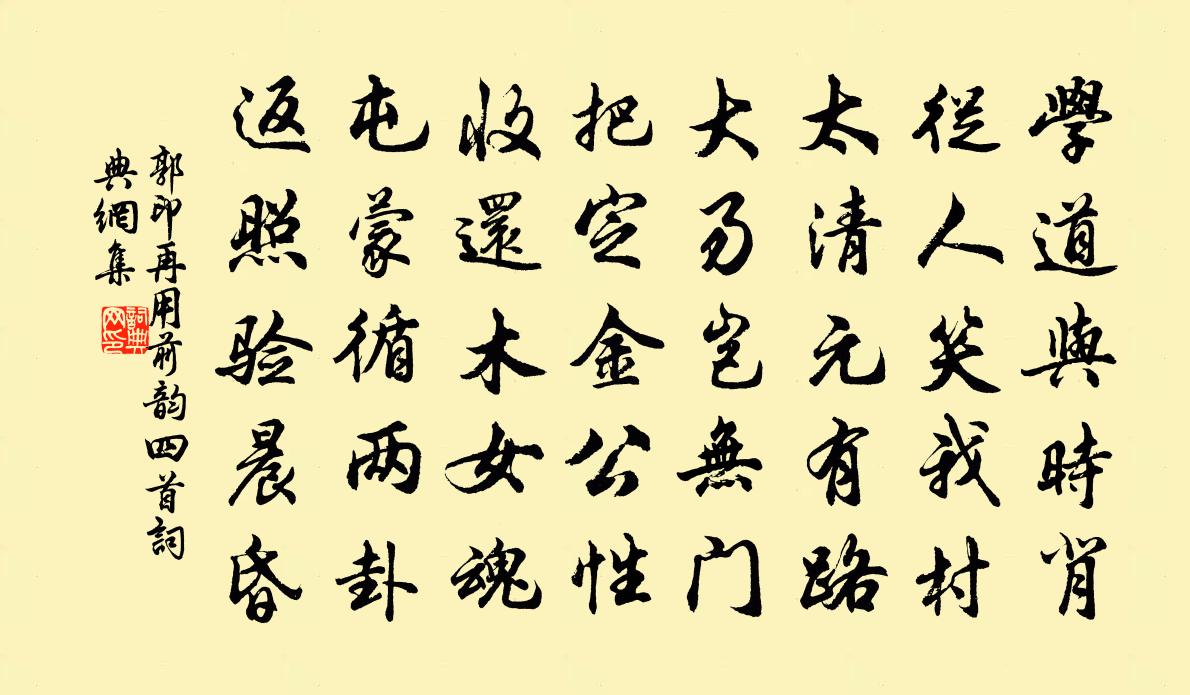 學道與時背
從人笑我村
太清元有路
大易豈無门
把定金公性
收還木女魂
屯蒙循两卦
返照验晨昏
郭印再用前韵四首詞
典網集
詞典
网印